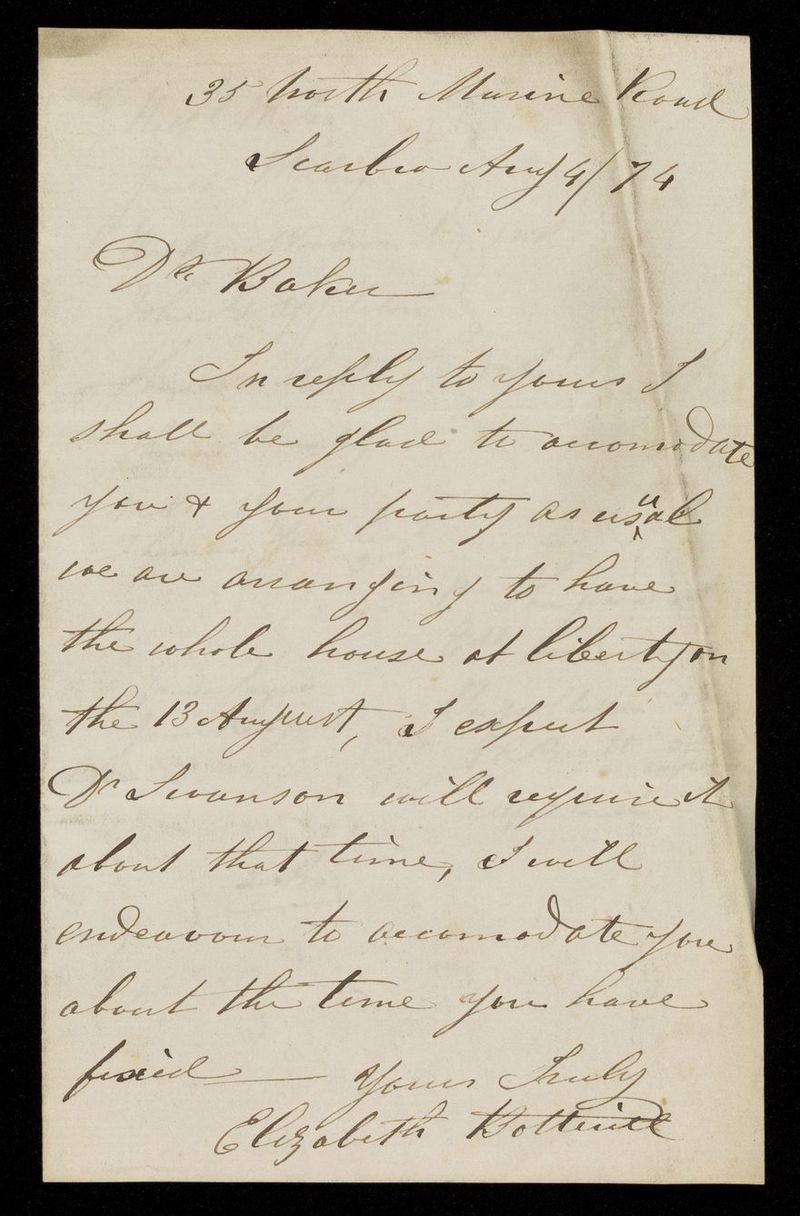 35 North Marine Road
Scarbro Aug 4/74
Dr Baker
In reply to yours I
shall be glad to accomodate
you & your party as usual
we are arranging to have
the whole house at liberty on
the 13 August, I expect
Dr Swanson will require it
about that time, I will
endeavour to accomodate you
about the time you have
fixed — Yours Truly
Elizabeth